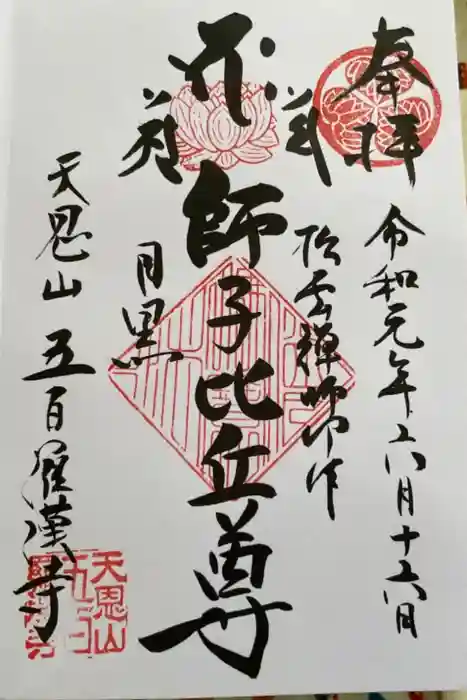 奉拝
令和元年六月十六日
松雲禅師作
師子比丘尊
目黒
天恩山 五百羅漢寺
天恩山
五百
羅漢寺